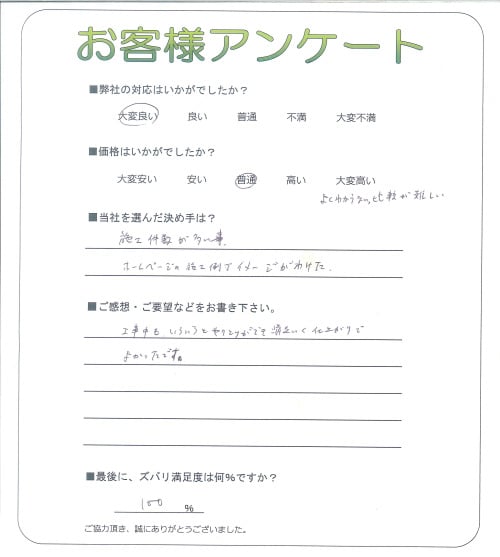 お客様アンケート
■弊社の対応はいかがでしたか?
大変良い 良い 普通 不満 大変不満
■価格はいかがでしたか?
大変安い 安い 普通 高い 大変高い
よくわからない、比較が難しい
■当社を選んだ決め手は?
施工件数が多い事。
ホームページの施工例でイメージがわけた。
■ご感想・ご要望などをお書き下さい。
工事中もいろいろとやりとりができ満足いく仕上がりで
よかったです。
■最後に、ズバリ満足度は何%ですか?
100 %
ご協力頂き、誠にありがとうございました。